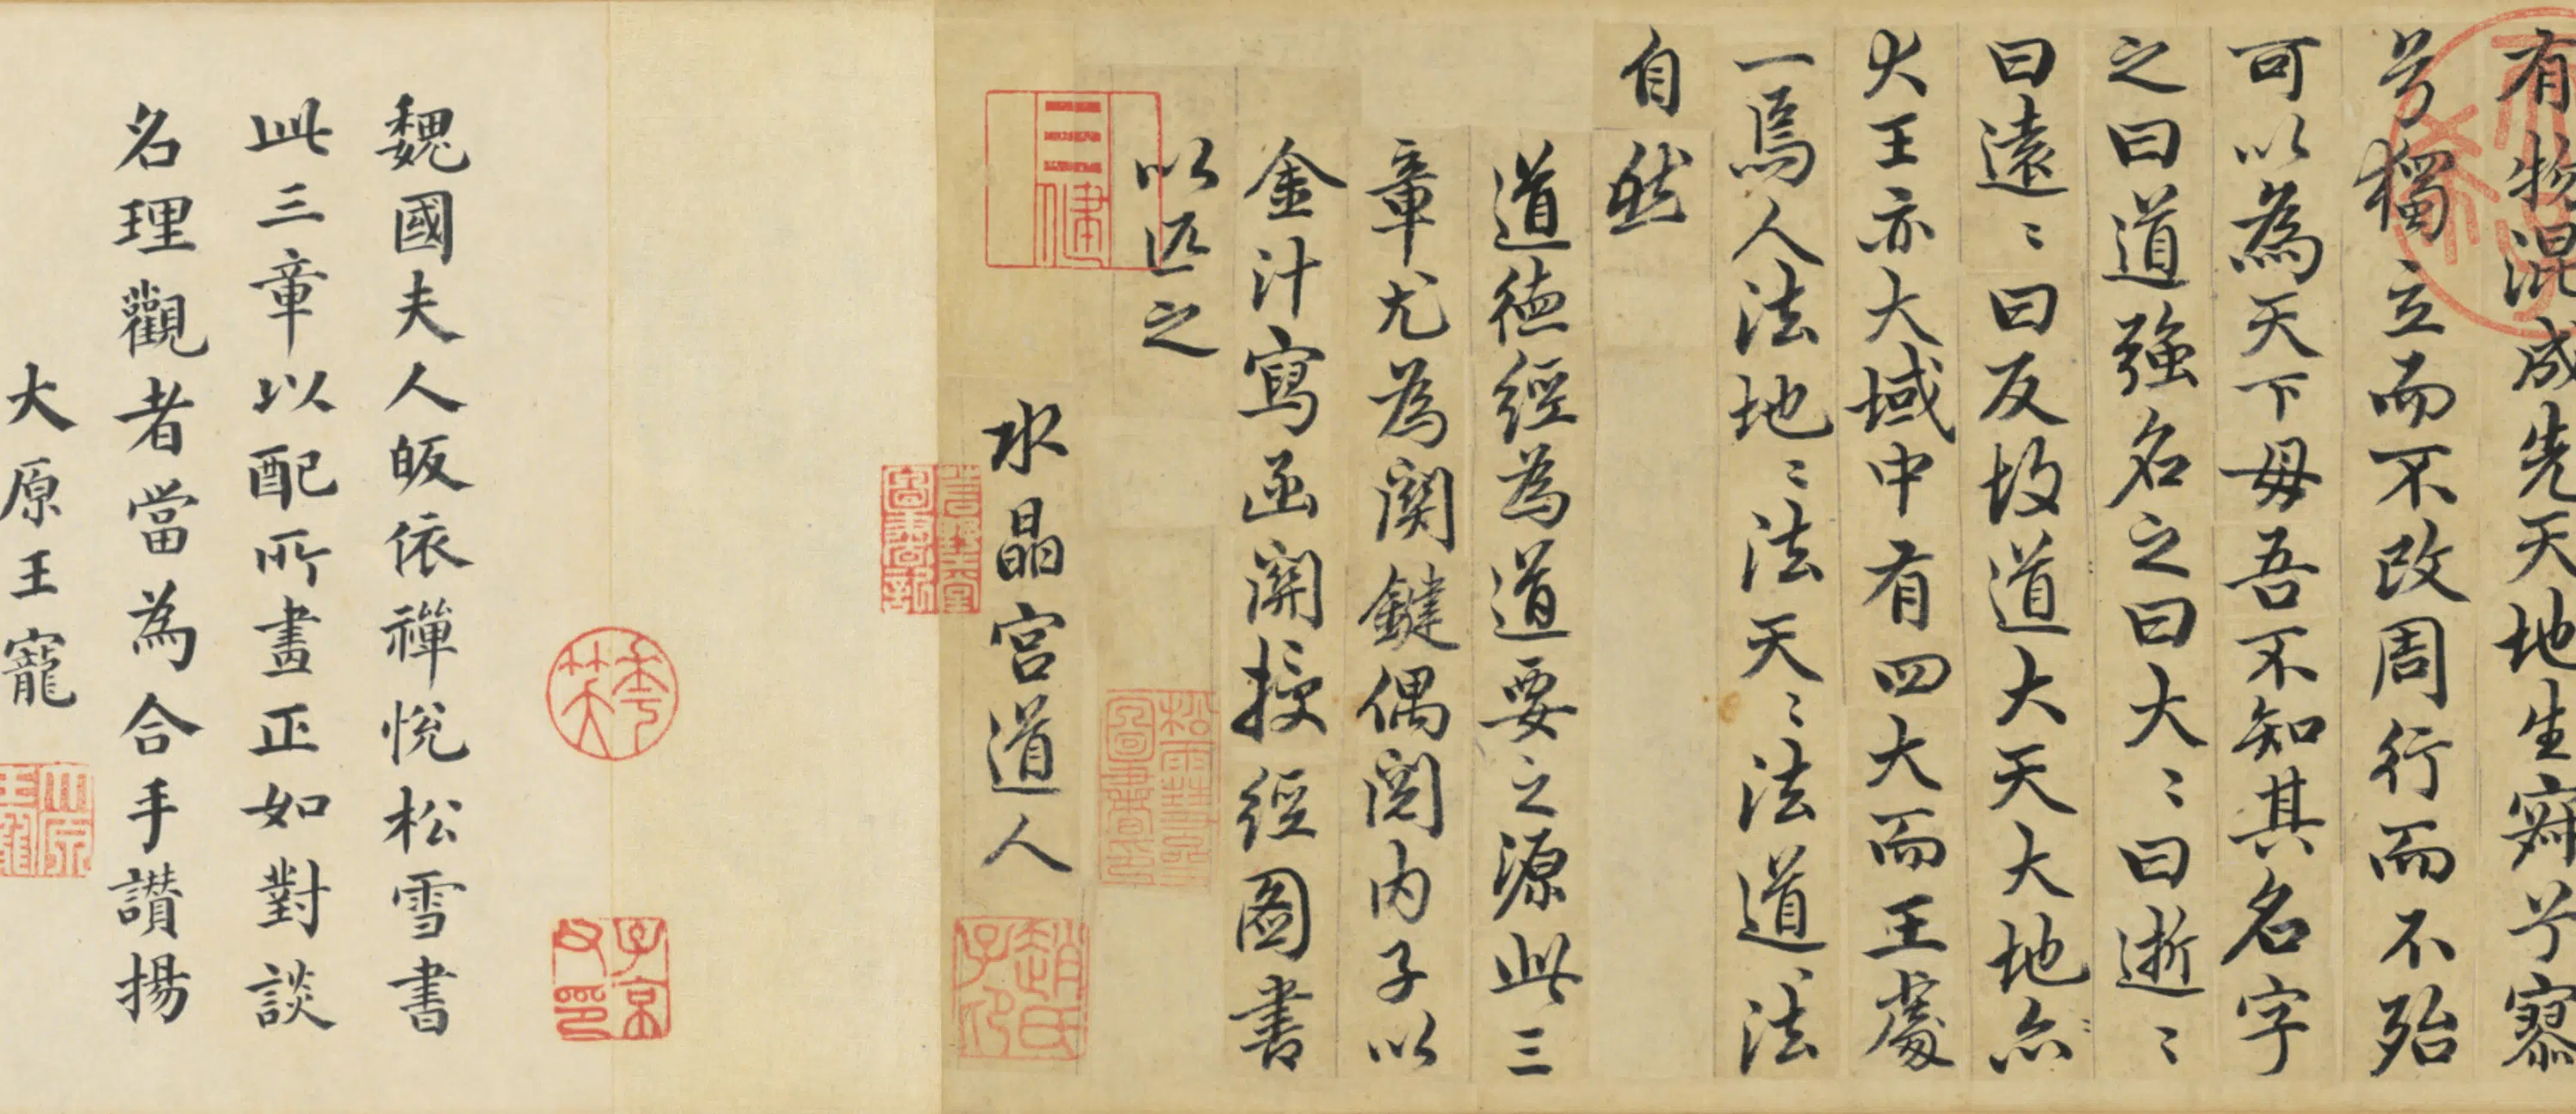 有物混成先天地生寂兮寥
兮獨立而不改周行而不殆
可以為天下母吾不知其名字
之曰道強名之曰大〻曰逝〻
曰遠〻曰反故道大天大地亦
大王亦大域中有四大而王處
一焉人法地〻法天〻法道〻法
自然
道德經為道要之源此三
章尤為關鍵偶閱內子以
金汁寫函關授經圖書
以匹之
松雪齋圖書印
水晶宮道人
趙氏子昂
子京父印
魏國夫人皈依禪悅松雪書
此三章以配所畫正如對談
名理觀者當為合手讚揚
大原王寵